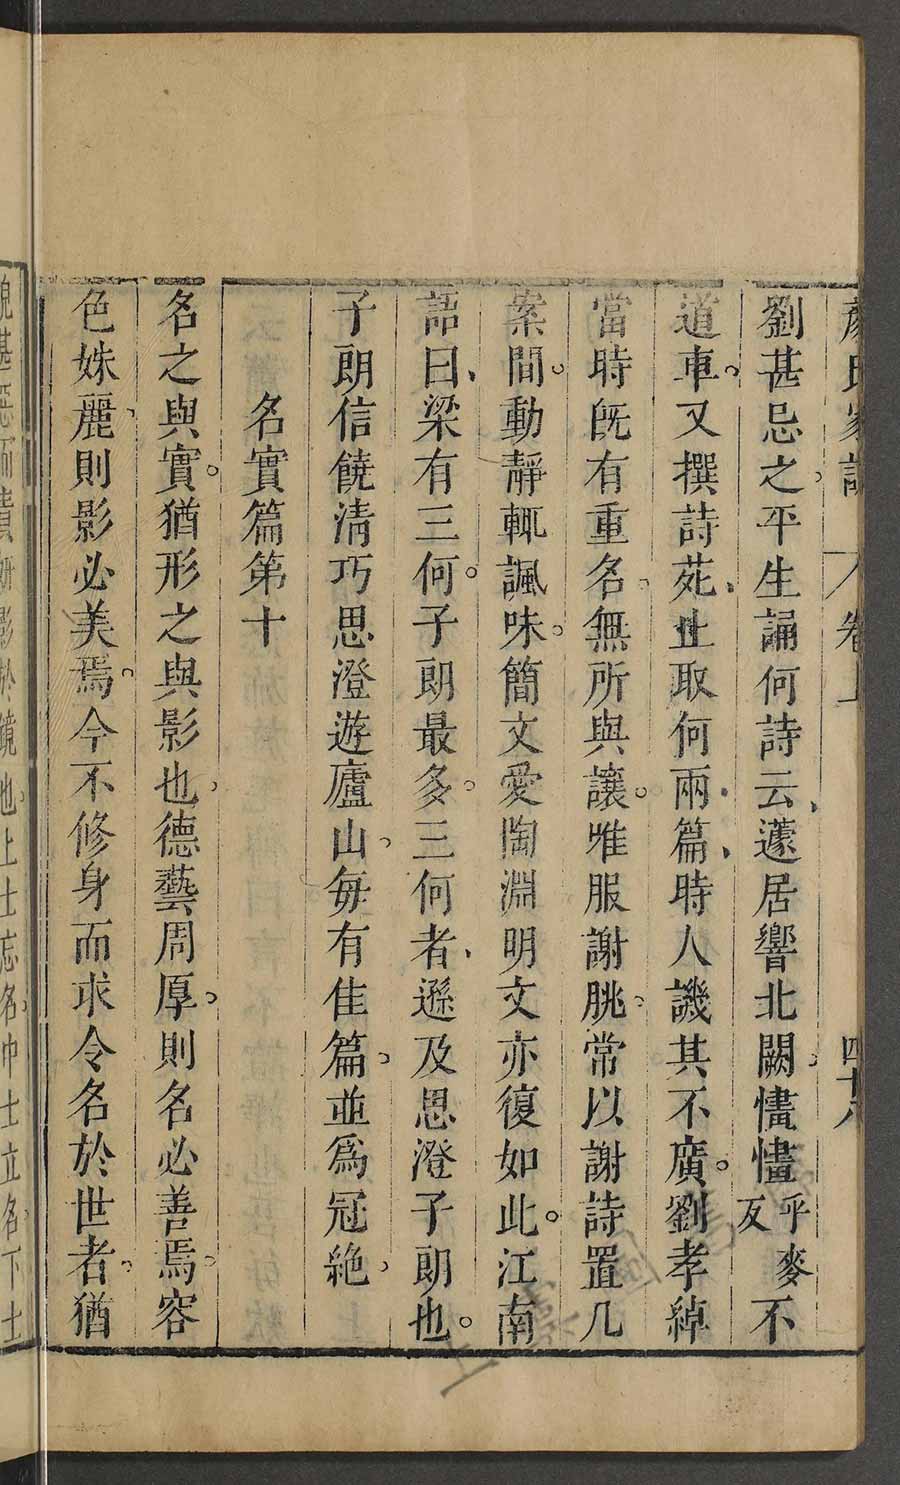 顏氏家訓 卷上 四十八
劉甚忌之。平生誦何詩云、蘧居響北闕。㦎㦎乎麥反不
道車。又撰詩苑、止取何兩篇、時人譏其不廣。劉孝綽
當時旣有重名。無所與讓。唯服謝朓。常以謝詩置几
案間。動靜輒諷味。簡文愛陶淵明文。亦復如此。江南
語曰、梁有三何。子朗最多。三何者、遜及思澄子朗也。
子朗信饒淸巧。思澄遊廬山。每有佳篇。並爲冠絶。
名實篇第十
名之與實。猶形之與影也。德藝周厚。則名必善焉。容
色姝麗。則影必美焉。今不修身而求令名於世者。猶
貌甚惡而責妍影於鏡也。上士忘名。中士立名。下士